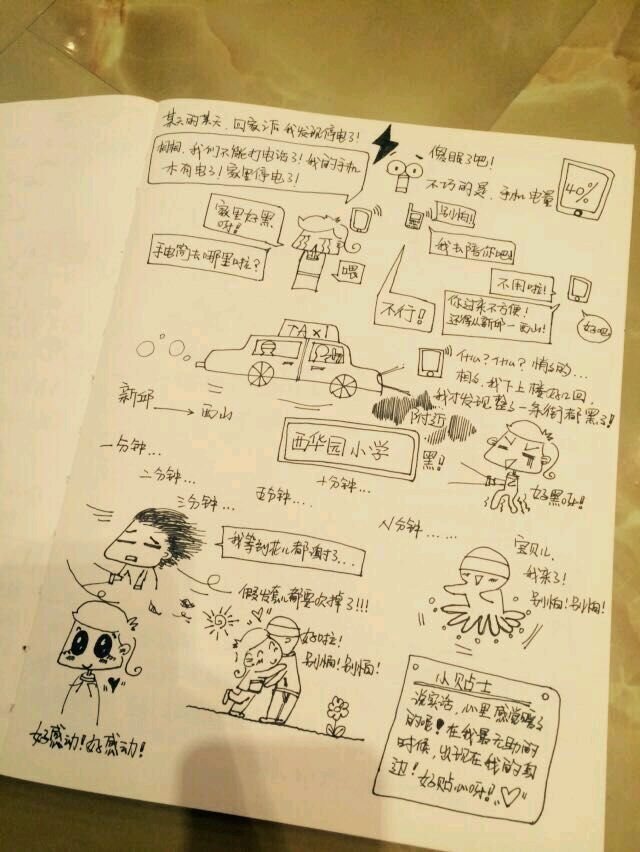 某天的某天，回家之后我发现停电了！
相相，我们不能打电话了！我的手机
木有电了！家里停电了！
傻眼了吧！
不巧的是，手机电量
40%
家里好黑
呀！
手电筒去哪里啦？
喂
别怕！
我去陪你吧！
不用啦！
你过来不方便！
还得从新邱—西山！
不行！
好吧
TAXI
新邱 → 西山
什么？什么？悄悄的...
相相，我下上楼好几回，
我才发现整了一条街都黑了！
附近
黑！
西华园小学
好黑呀！
一分钟...
二分钟...
三分钟...
五分钟...
十分钟...
N分钟......
我等到花儿都谢了...
假发套儿都要吹掉了!!!
宝贝儿，
我来了！
别怕！别怕！
好感动！好感动！
好啦！
别怕！别怕！
小贴士
说实话，心里感觉暖暖
的呢！在我最无助的
时候，出现在我的身
边！好贴心呀！